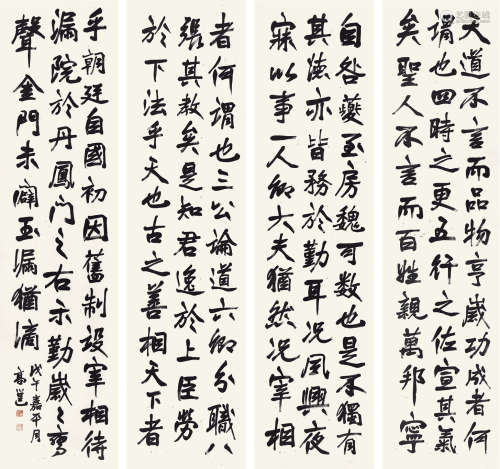 天道不言而品物亨歲功成者何
謂也四時之更五行之佐宣其氣
矣聖人不言而百姓親萬邦寧
者何謂也三公論道六卿分職
張其教矣是知君逸於上臣勞
於下法乎天也古之善相天下者
自咎夔至房魏可數也是不獨有
其德亦皆務於勤耳況夙興夜
寐以事一人卿大夫猶然況宰相
乎朝廷自國初因舊制設宰相待
漏院於丹鳳門之右示勤歲々鸞
聲金門未闢玉漏猶滴
戊午嘉平月
高邕